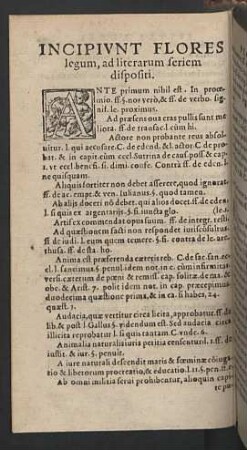 INCIPIVNT FLORES
legum, ad literarum seriem
dispositi.
ANTE primum nihil est. In
mio. ff. §. nos verò, & ff. de verbo. sign
nif. l. proximus.
Ad præsens oua cras pullis sunt me
liora. ff. de transac. l. cum hi.
Actore non probante reus absol-
uitur. l. qui accusare. C. de edend. & l. actor C. de pro
bat. & in capit. cùm eccl. Sutrina de caus. poss. & cap.
vt eccl. benefi. si. dimi. confe. Contrà ff. de eden. l.
ne quisquam.
Aliquis fortiter non debet asserere, quod ignorat.
ff. de ac. empt. & ven. Iulianus. §. quod tamen.
Ab alijs doceri nō debet, qui alios docet. ff. de eden
l. si quis ex argentarijs. §. si initia glo.
Artifex commendat opus suum. ff. de integr. resti.
Ad quæstionem facti non respondet iurisconsultus.
ff. de iudi. l. eum quem temerè. §. fi. contrà de
thus. ff. de sta. ho.
Anima est præferenda cæteris reb. C. de sac. san. ec-
cle. l. sancimus. §. penul. idem not. in c. cùm infirmitas
versi. cæterum de pœni & remiss. cap. solitæ de ma. &
obe. & Arist. 7. polit idem not. in cap. præcipimus
duodecima quæstione prima, & in ca. si habes, 24.
quæst.
Audacia, quæ vertitur circa licita, approbatur. ff. de
lib. & post l. Gallus §. videndum est. Sed audacia circa
illicita reprobatur l. si quis
Animalia naturalia iuris peritia censentur. l. ff. de
iustit. & iur. §. penult.
A iure naturali descendit maris & fœminæ coniug
tio & liberorum procreatio, & educatio.
Ab omni militia serui prohibentur, alioquin capi-
te pu